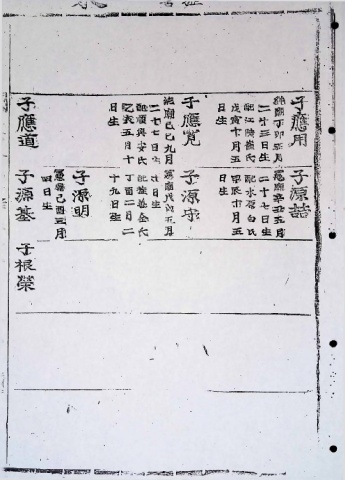 子應用
純廟丁卯五月
二十三日生
配江陵崔氏
戊寅十月五
日生
子源喆
憲廟辛丑五月
二十七日生
配水原白氏
甲辰十月五
日生
子應寬
純廟己巳九月
二十七日生
配順興安氏
乙亥五月十
日生
子源守
憲廟戊戌五月
日生
金氏
丁酉二月二
十九日生
子源明
憲廟己酉三月
四日生
子應道
子源基
子根榮